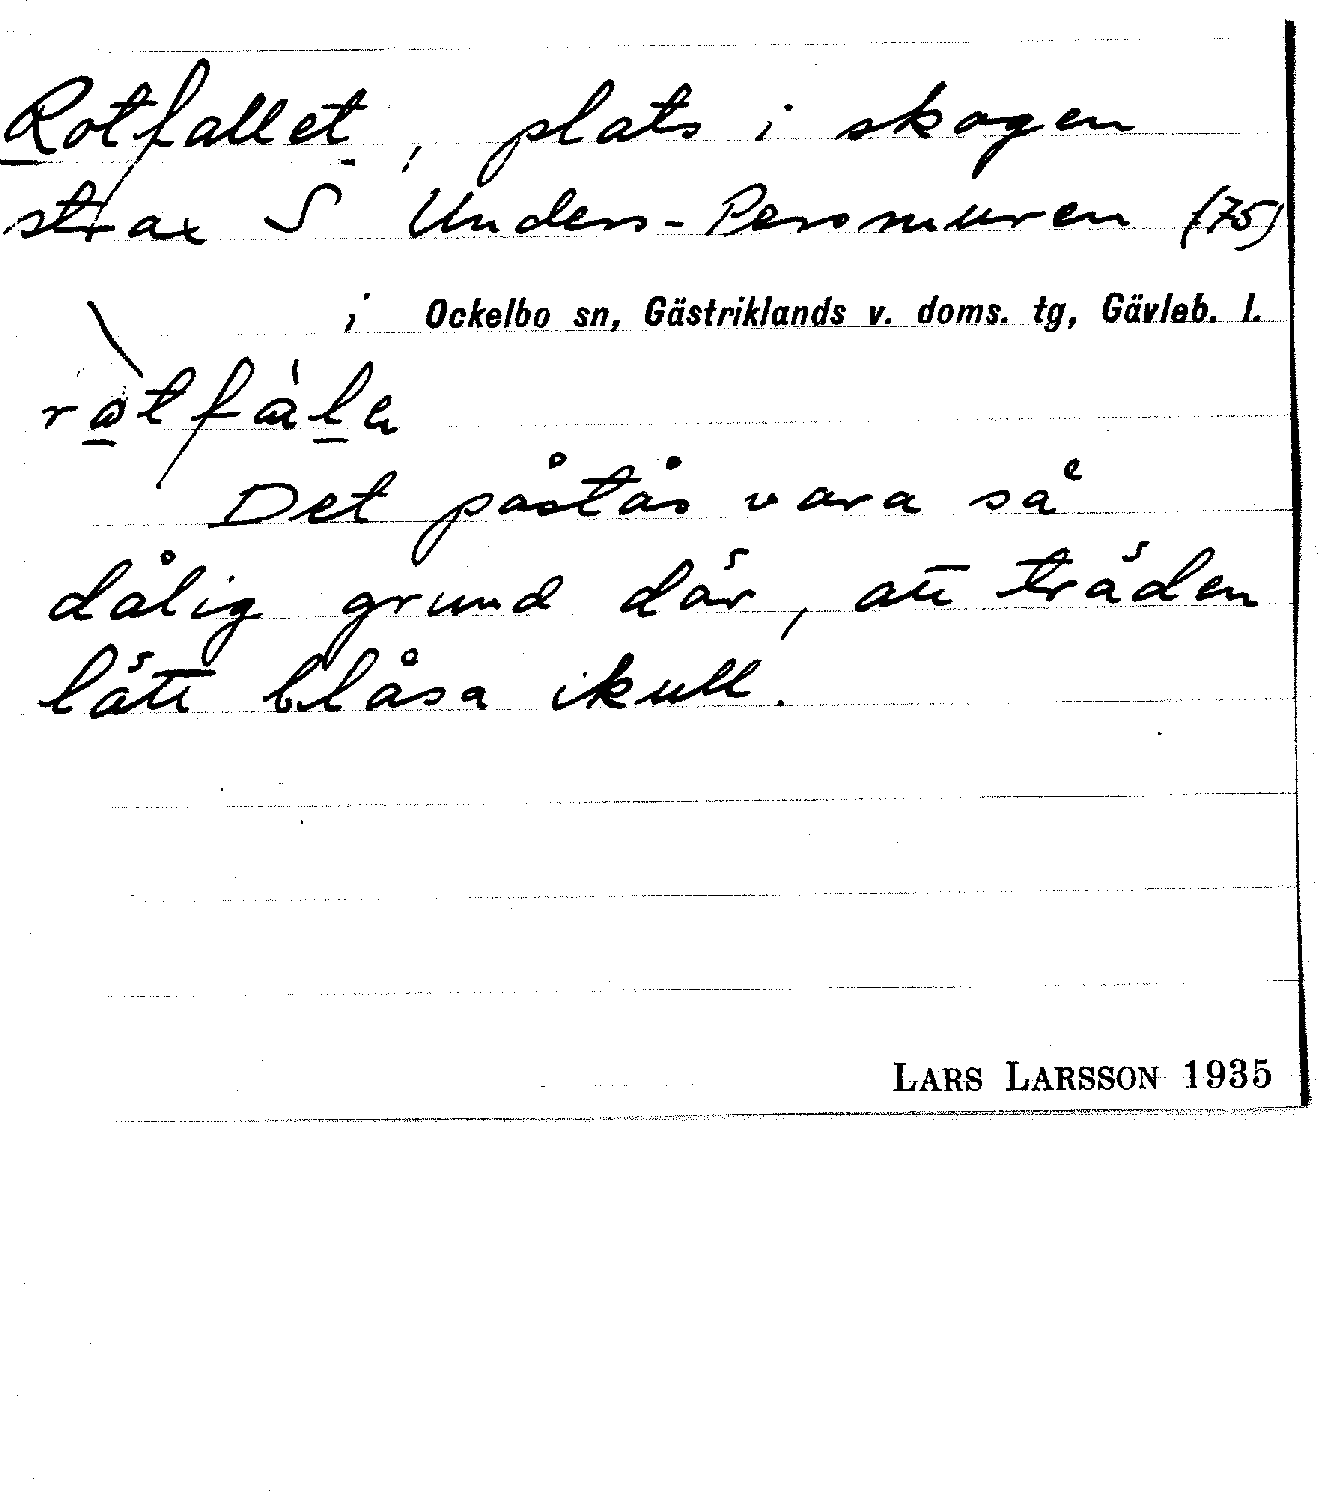 Rotfallet, plats i skogen
strax S Unders-Persmuren (75)
i Ockelbo sn, Gästriklands v. doms. tg, Gävleb. l.
Det påstås vara så
dålig grund där, att träden
lätt blåsa ikull.
LARS LARSSON 1935